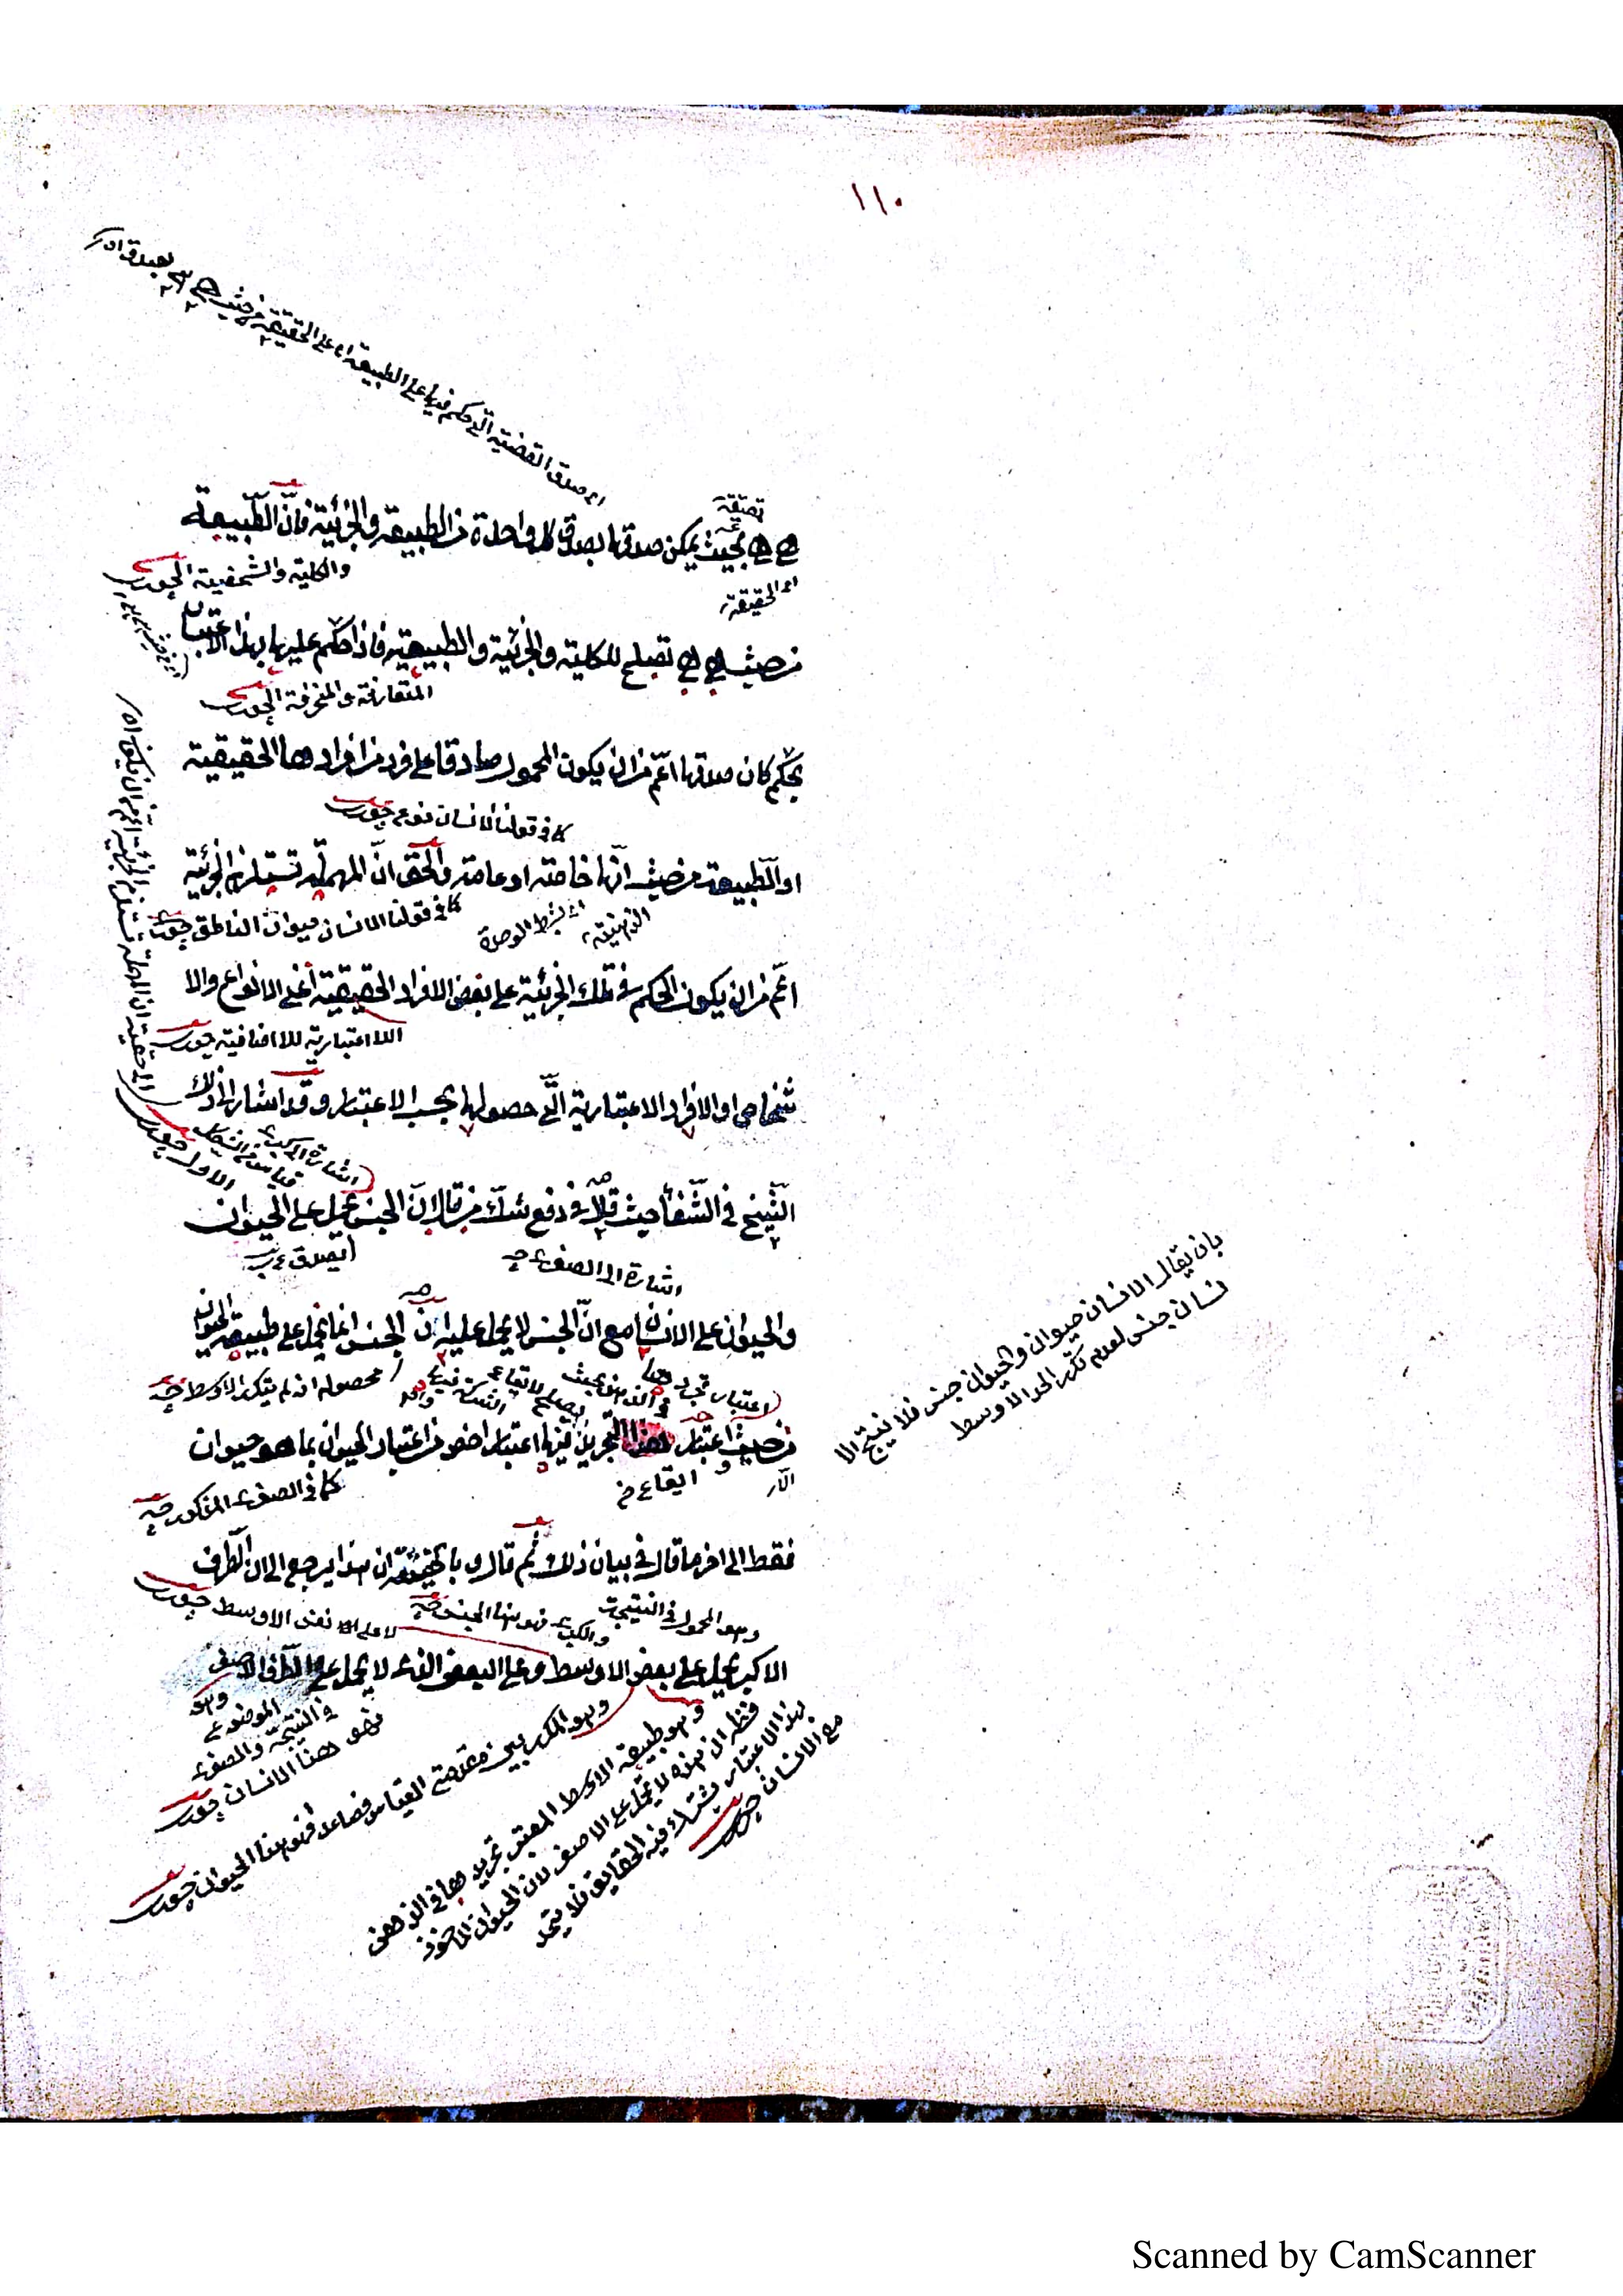 ١١٠
اى صدق القضية التى حكم فيها على الطبيعة اى على الحقيقة من حيث هى هى
حقيقة
هى هى بحيث يمكن صدقها بصدق كل واحدة من الطبيعة والجزئية فانّ الطّبيعة
اى الحقيقة
والكلية والشخصية
من حيث هى هى تصلح للكلية والجزئية والطبيعية فاذا حكم عليها بهذا الاعتبار
المتعارفة والمنحرفة
بحكم كان صدقها اعمّ من ان يكون المحمول صادقا على فرد من افرادها الحقيقية
كما فى قولنا الانسان نوع
او الطّبيعة من حيث انّها خاصة او عامة والحقّ انّ المهملة تستلزم الجزئية
الذهنية
اى بشرط الوحدة
كما فى قولنا الانسان حيوان الناطق
اعمّ من ان يكون الحكم فى تلك الجزئية على بعض الافراد الحقيقية اعنى الانواع والا
الاعتبارية للاضافية
شخاص او الافراد الاعتبارية الّتى حصولها بحسب الاعتبار وقد اشار الى ذلك
اشارة الى كبرى
قياس من الشكل
الاول
الشّيخ فى الشّفأ حيث قال فى دفع شكّ من قال انّ الجنس يحمل على الحيوان
اشارة الى الصغرى
والحيوان على الانسان مع انّ الجنس لا يحمل عليه انّ الجنس انما يحمل على طبيعة الحيوان
اعتبار تجردها
فى الذهن بحيث
يصلح لايقاع
الشركة فيها
محصوله انه لم يتكرر الاوسط
من حيث اعتبار هذا التجريد فيها اعتبار اخص من اعتبار الحيوان بما هو حيوان
ايقاع
كما فى الصغرى المذكور
فقط الى اخر ما قال فى بيان ذلك ثم قال وبالحقيقة ان هذا يرجع الى ان الطرف
وهو المحمول فى النتيجة
والكبرى فهو هنا الجنس
لا على نفس الاوسط
الاكبر يحمل على بعض الاوسط وعلى البعض الذى لا يحمل على الطرف الاصغر
وهو
الموضوع
فى النتيجة والصغرى
فهو هنا الانسان
وهو المكرر بين مقدمتى القياس فصاعدا فهو هنا الحيوان
وهو طبيعة الاوسط المعتبر تجريدها فى الذهن
فظهر ان هذه لا يحمل على الاصغر لان الحيوان المأخوذ
بهذا الاعتبار يشترك فيه الحقايق فلا يتحد
مع الانسان
بان يقال الانسان حيوان والحيوان جنس فلا ينتج الا
نسان جنس لعدم تكرر الحد الاوسط
Scanned by CamScanner